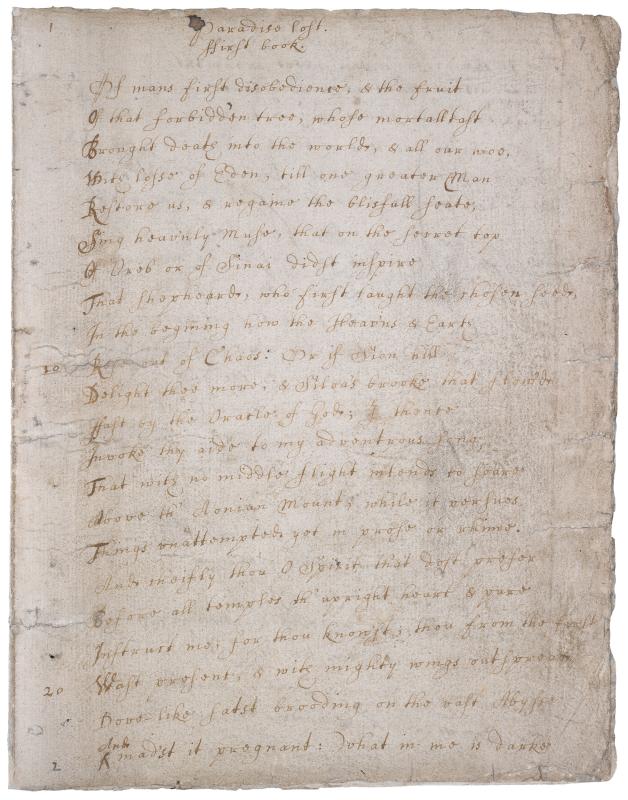 1
Paradise lost.
ffirst book.
Of mans first disobedience, & the fruit
Of that forbidden tree, whose mortall tast
Brought death into the world, & all our woe,
With losse of Eden, till one greater Man
Restore us, & regaine the blisfull seate,
Sing heav'nly Muse, that on the secret top
Of Oreb or of Sinai didst inspire
That shepheard, who first taught the chosen seed,
In the begining how the Heav'ns & Earth
10 Rose out of Chaos: Or if Sion hill
Delight thee more, & Siloa's brooke that flow'd
ffast by the Oracle of God; I thence
Invoke thy aide to my adventrous song,
That with no middle flight intends to soare
Above th' Aonian Mount, while it persues
Things unattempted yet in prose or rhime.
And cheifly thou O Spirit that dost prefer
Before all temples th' upright heart & pure
Instruct me, for thou know'st; thou from the first
Wast present, & with mighty wings outspread
20 Dove-like satst brooding on the vast Abysse
And
mad'st it pregnant: What in me is darke
2